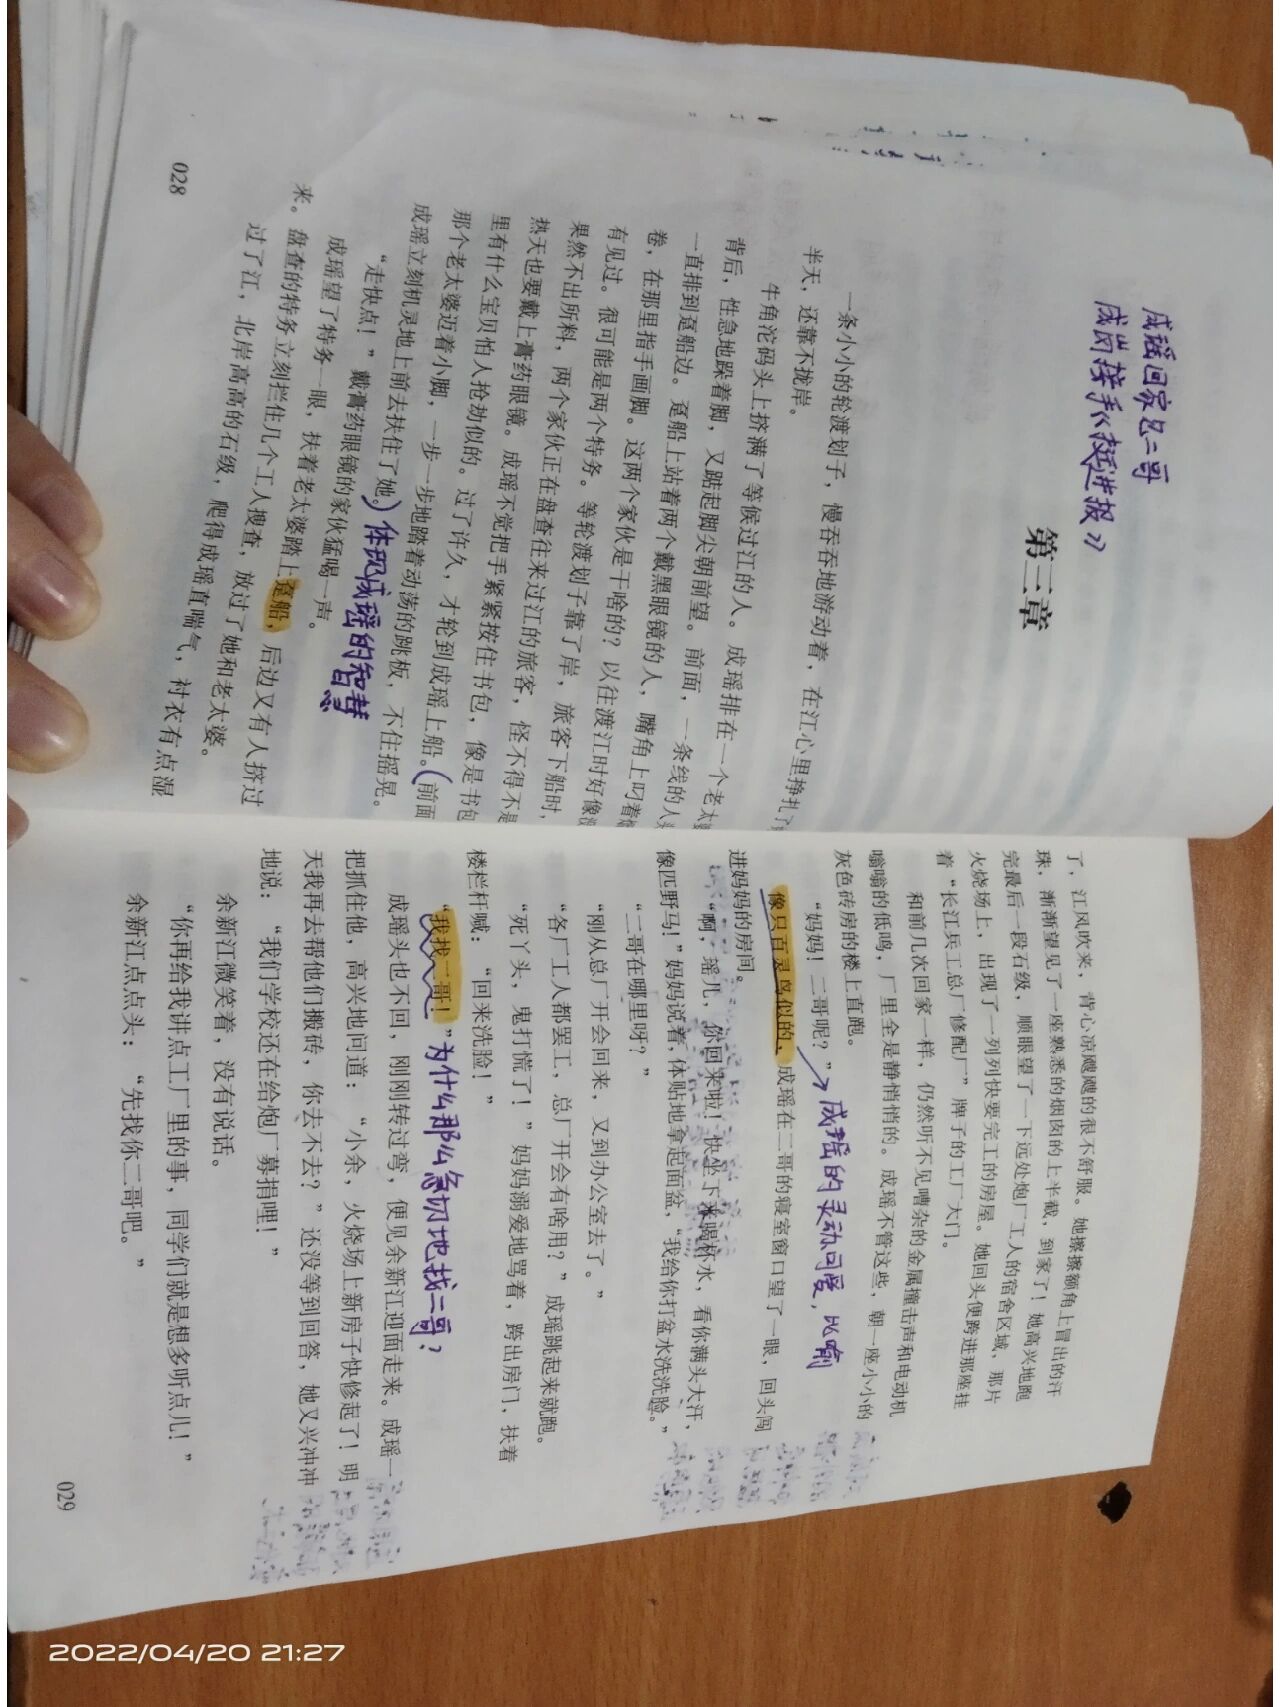 成瑶回家见二哥
成岗接手《挺进报》
第三章
一条小小的轮渡划子，慢吞吞地游动着，在江心里挣扎了
半天，还靠不拢岸。
牛角沱码头上挤满了等候过江的人。成瑶排在一个老太
背后，性急地跺着脚，又踮起脚尖朝前望。前面，一条线的人
一直排到趸船边。趸船上站着两个戴黑眼镜的人，嘴角上叼着
卷，在那里指手画脚。这两个家伙是干啥的？以往渡江时好像
有见过。很可能是两个特务。等轮渡划子靠了岸，旅客下船时，
果然不出所料，两个家伙正在盘查往来过江的旅客，怪不得不是
热天也要戴上膏药眼镜。成瑶不觉把手紧紧按住书包，像是书包
里有什么宝贝怕人抢劫似的。过了许久，才轮到成瑶上船。（前面
那个老太婆迈着小脚，一步一步地踏着动荡的跳板，不住摇晃。
成瑶立刻机灵地上前去扶住了她。）体现成瑶的智慧
“走快点！”戴膏药眼镜的家伙猛喝一声。
成瑶望了特务一眼，扶着老太婆踏上趸船，后边又有人挤过
来。盘查的特务立刻拦住几个工人搜查，放过了她和老太婆。
过了江，北岸高高的石级，爬得成瑶直喘气，衬衣有点湿
028
了，江风吹来，背心凉飕飕的很不舒服。她擦擦额角上冒出的汗
珠，渐渐望见了一座熟悉的烟囱的上半截，到家了！她高兴地跑
完最后一段石级，顺眼望了一下远处炮厂工人的宿舍区域，那片
火烧场上，出现了一列列快要完工的房屋。她回头便跨进那座挂
着“长江兵工总厂修配厂”牌子的工厂大门。
和前几次回家一样，仍然听不见嘈杂的金属撞击声和电动机
嗡嗡的低鸣，厂里全是静悄悄的。成瑶不管这些，朝一座小小的
灰色砖房的楼上直跑。
“妈妈！二哥呢？”
成瑶的灵动可爱，比喻
像只百灵鸟似的，成瑶在二哥的寝室窗口望了一眼，回头闯
进妈妈的房间。
“啊，瑶儿，你回来啦！快坐下来喝杯水，看你满头大汗，
像匹野马！”妈妈说着，体贴地拿起面盆，“我给你打盆水洗洗脸。”
“二哥在哪里呀？”
“刚从总厂开会回来，又到办公室去了。”
“各厂工人都罢工，总厂开会有啥用？”成瑶跳起来就跑。
“死丫头，鬼打慌了！”妈妈溺爱地骂着，跨出房门，扶着
楼栏杆喊：“回来洗脸！”
“我找二哥！”为什么那么急切地找二哥？
成瑶头也不回，刚刚转过弯，便见余新江迎面走来。成瑶一
把抓住他，高兴地问道：“小余，火烧场上新房子快修起了！明
天我再去帮他们搬砖，你去不去？”还没等到回答，她又兴冲冲
地说：“我们学校还在给炮厂募捐哩！”
余新江微笑着，没有说话。
“你再给我讲点工厂里的事，同学们就是想多听点儿！”
余新江点点头：“先找你二哥吧。”
029
2022/04/20 21:27